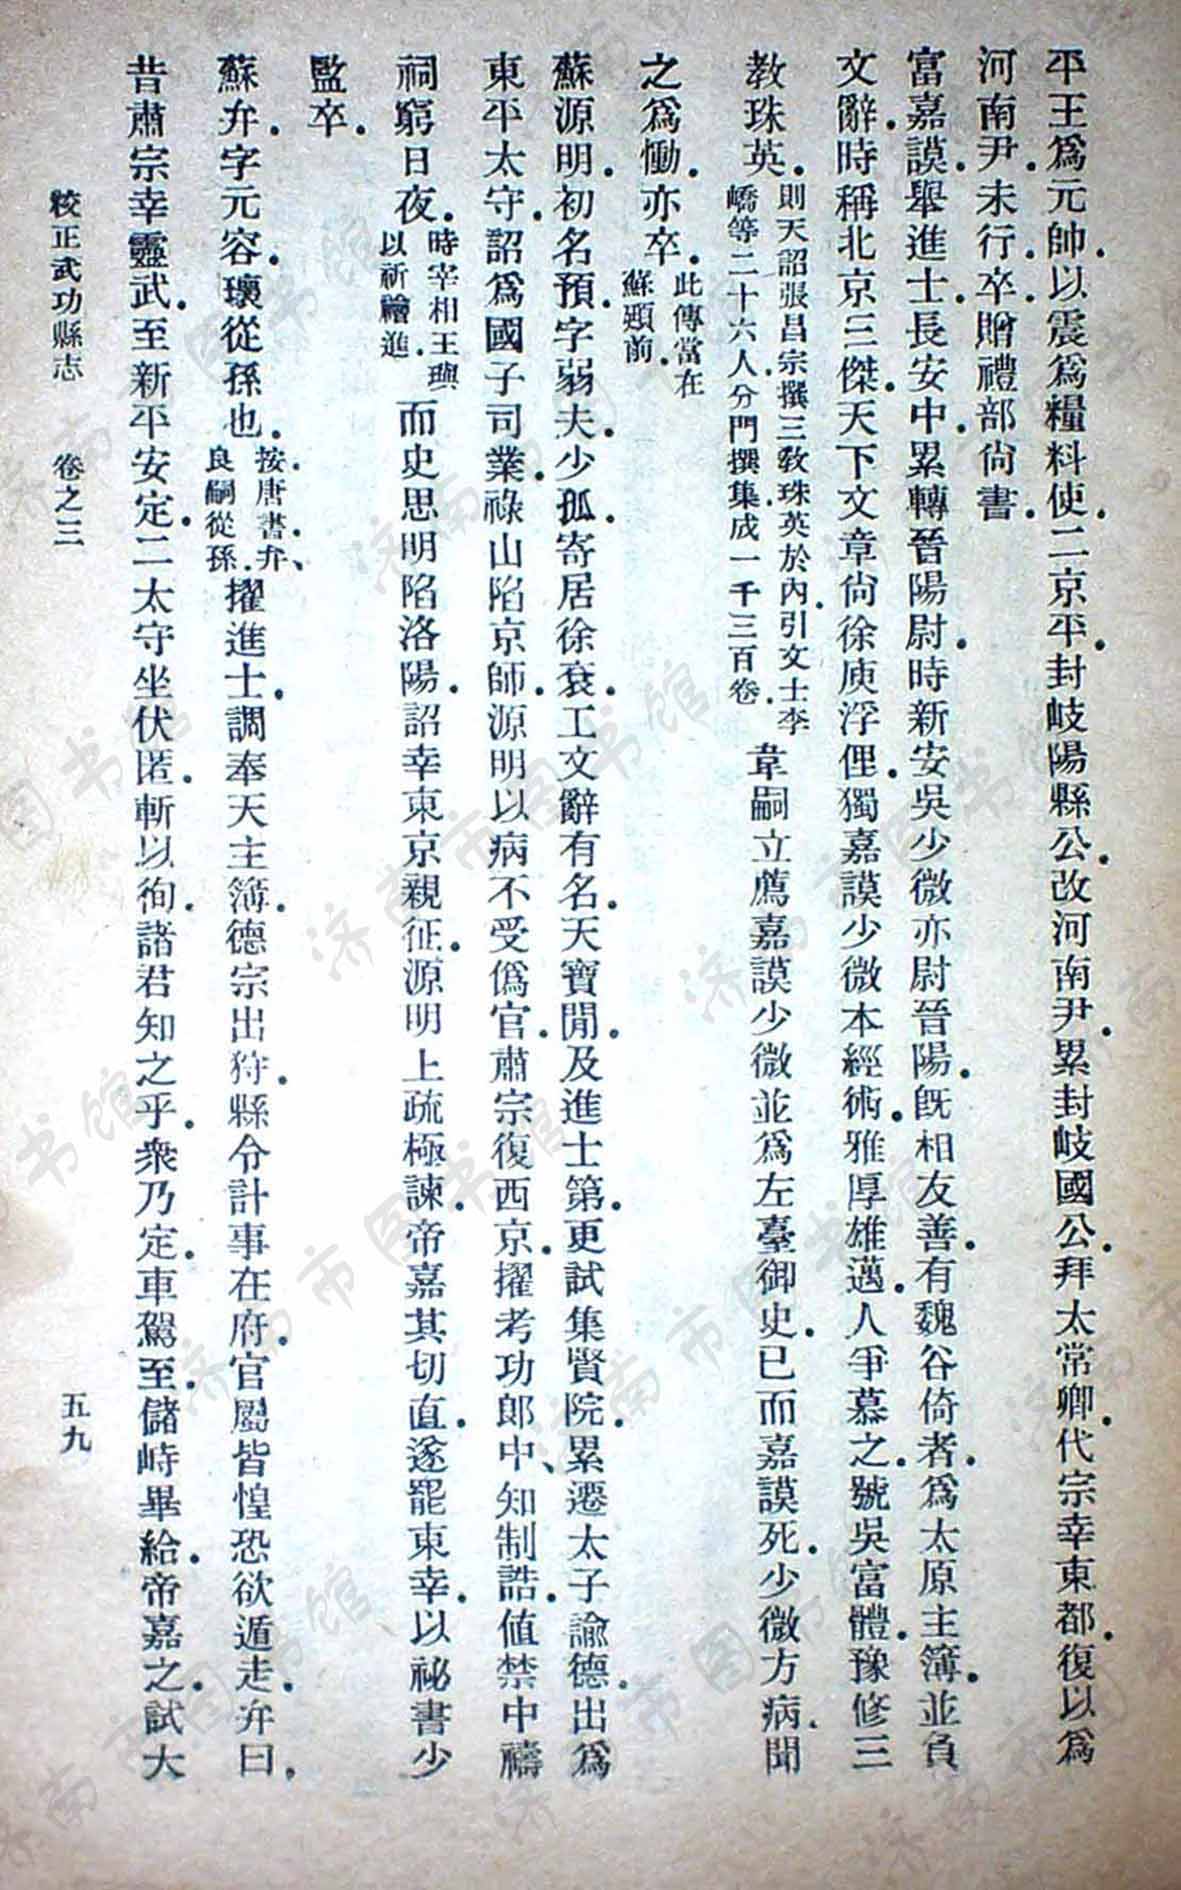 平王爲元帥.以震爲糧料使.二京平.封岐陽縣公.改河南尹.累封岐國公.拜太常卿.代宗幸東都.復以爲
河南尹.未行.卒.贈禮部尙書.
富嘉謨.舉進士.長安中.累轉晉陽尉.時新安吳少微亦尉晉陽.旣相友善.有魏谷倚者.爲太原主簿.並負
文辭.時稱北京三傑.天下文章尙徐庾浮俚.獨嘉謨少微本經術.雅厚雄邁.人爭慕之.號吳富體.豫修三
敎珠英.則天詔張昌宗撰三敎珠英於內.引文士李嶠等二十六人分門撰集.成一千三百卷.韋嗣立薦嘉謨少微並爲左臺御史.已而嘉謨死.少微方病.聞
之爲慟.亦卒.此傳當在蘇頲前.
蘇源明.初名預.字弱夫.少孤.寄居徐兗.工文辭有名.天寶閒.及進士第.更試集賢院.累遷太子諭德.出爲
東平太守.詔爲國子司業.祿山陷京師.源明以病不受僞官.肅宗復西京.擢考功郎中、知制誥.値禁中禱
祠窮日夜.時宰相王璵以祈禬進.而史思明陷洛陽.詔幸東京親征.源明上疏極諫.帝嘉其切直.遂罷東幸.以祕書少
監卒.
蘇弁.字元容.瓌從孫也.按.唐書.弁、良嗣從孫.擢進士.調奉天主簿.德宗出狩.縣令計事在府.官屬皆惶恐欲遁走.弁曰.
昔肅宗幸靈武.至新平安定.二太守坐伏匿.斬以徇.諸君知之乎.衆乃定.車駕至.儲峙畢給.帝嘉之.試大
校正武功縣志 卷之三 五九
济南市图书馆